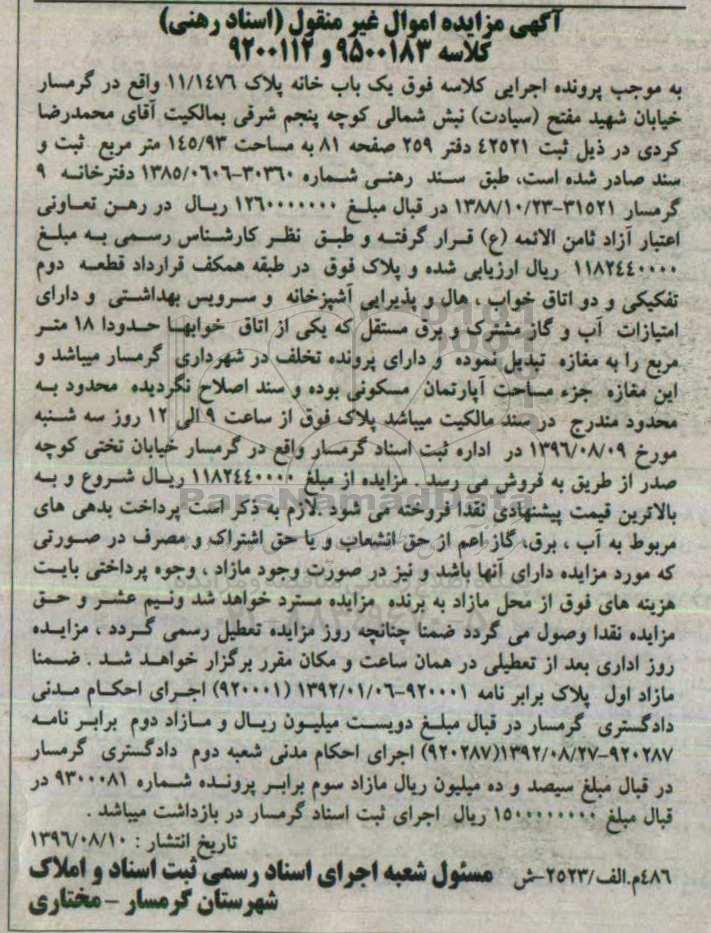 آگهی مزایده اموال غیر منقول (اسناد رهنی)
کلاسه ۹۵۰۰۱۸۳ و ۹۲۰۰۱۱۲
به موجب پرونده اجرایی کلاسه فوق یک باب خانه پلاک ۱۱/۱۴۷۶ واقع در گرمسار
خیابان شهید مفتح (سیادت) نبش شمالی کوچه پنجم شرقی بمالکیت آقای محمدرضا
کردی در ذیل ثبت ۴۲۵۲۱ دفتر ۲۵۹ صفحه ۸۱ به مساحت ۱۴۵/۹۳ متر مربع ثبت و
سند صادر شده است، طبق سند رهنی شماره ۳۰۳۶۰-۱۳۸۵/۰۶۰۶ دفترخانه ۹
گرمسار ۳۱۵۲۱-۱۳۸۸/۱۰/۲۳ در قبال مبلغ ۱۲۶۰۰۰۰۰۰۰ ریال در رهن تعاونی
اعتبار آزاد ثامن الائمه (ع) قرار گرفته و طبق نظر کارشناس رسمی به مبلغ
۱۱۸۲۴۴۰۰۰۰ ریال ارزیابی شده و پلاک فوق در طبقه همکف قرارداد قطعه دوم
تفکیکی و دو اتاق خواب ، هال و پذیرایی آشپزخانه و سرویس بهداشتی و دارای
امتیازات آب و گاز مشترک و برق مستقل که یکی از اتاق خوابها حدودا ۱۸ متر
مربع را به مغازه تبدیل نموده و دارای پرونده تخلف در شهرداری گرمسار میباشد و
این مغازه جزء مساحت آپارتمان مسکونی بوده و سند اصلاح نگردیده محدود به
محدود مندرج در سند مالکیت میباشد پلاک فوق از ساعت ۹ الی ۱۲ روز سه شنبه
مورخ ۱۳۹۶/۰۸/۰۹ در اداره ثبت اسناد گرمسار واقع در گرمسار خیابان تختی کوچه
صدر از طریق به فروش می رسد . مزایده از مبلغ ۱۱۸۲۴۴۰۰۰۰ ریال شروع و به
بالاترین قیمت پیشنهادی نقدا فروخته می شود .لازم به ذکر است پرداخت بدهی های
مربوط به آب ، برق، گاز اعم از حق انشعاب و یا حق اشتراک و مصرف در صورتی
که مورد مزایده دارای آنها باشد و نیز در صورت وجود مازاد ، وجوه پرداختی بایت
هزینه های فوق از محل مازاد به برنده مزایده مسترد خواهد شد ونیم عشر و حق
مزایده نقدا وصول می گردد ضمنا چنانچه روز مزایده تعطیل رسمی گردد ، مزایده
روز اداری بعد از تعطیلی در همان ساعت و مکان مقرر برگزار خواهد شد . ضمنا
مازاد اول پلاک برابر نامه ۹۲۰۰۰۱-۱۳۹۲/۰۱/۰۶ (۹۲۰۰۰۱) اجرای احکام مدنی
دادگستری گرمسار در قبال مبلغ دویست میلیون ریال و مازاد دوم برابر نامه
۹۲۰۲۸۷-۱۳۹۲/۰۸/۲۷(۹۲۰۲۸۷) اجرای احکام مدنی شعبه دوم دادگستری گرمسار
در قبال مبلغ سیصد و ده میلیون ریال مازاد سوم برابر پرونده شماره ۹۳۰۰۰۸۱ در
قبال مبلغ ۱۵۰۰۰۰۰۰۰۰ ریال اجرای ثبت اسناد گرمسار در بازداشت میباشد .
تاریخ انتشار : ۱۳۹۶/۰۸/۱۰
۴۸۶م.الف/۲۵۲۳-ش مسئول شعبه اجرای اسناد رسمی ثبت اسناد و املاک
شهرستان گرمسار - مختاری
ParsNamadData